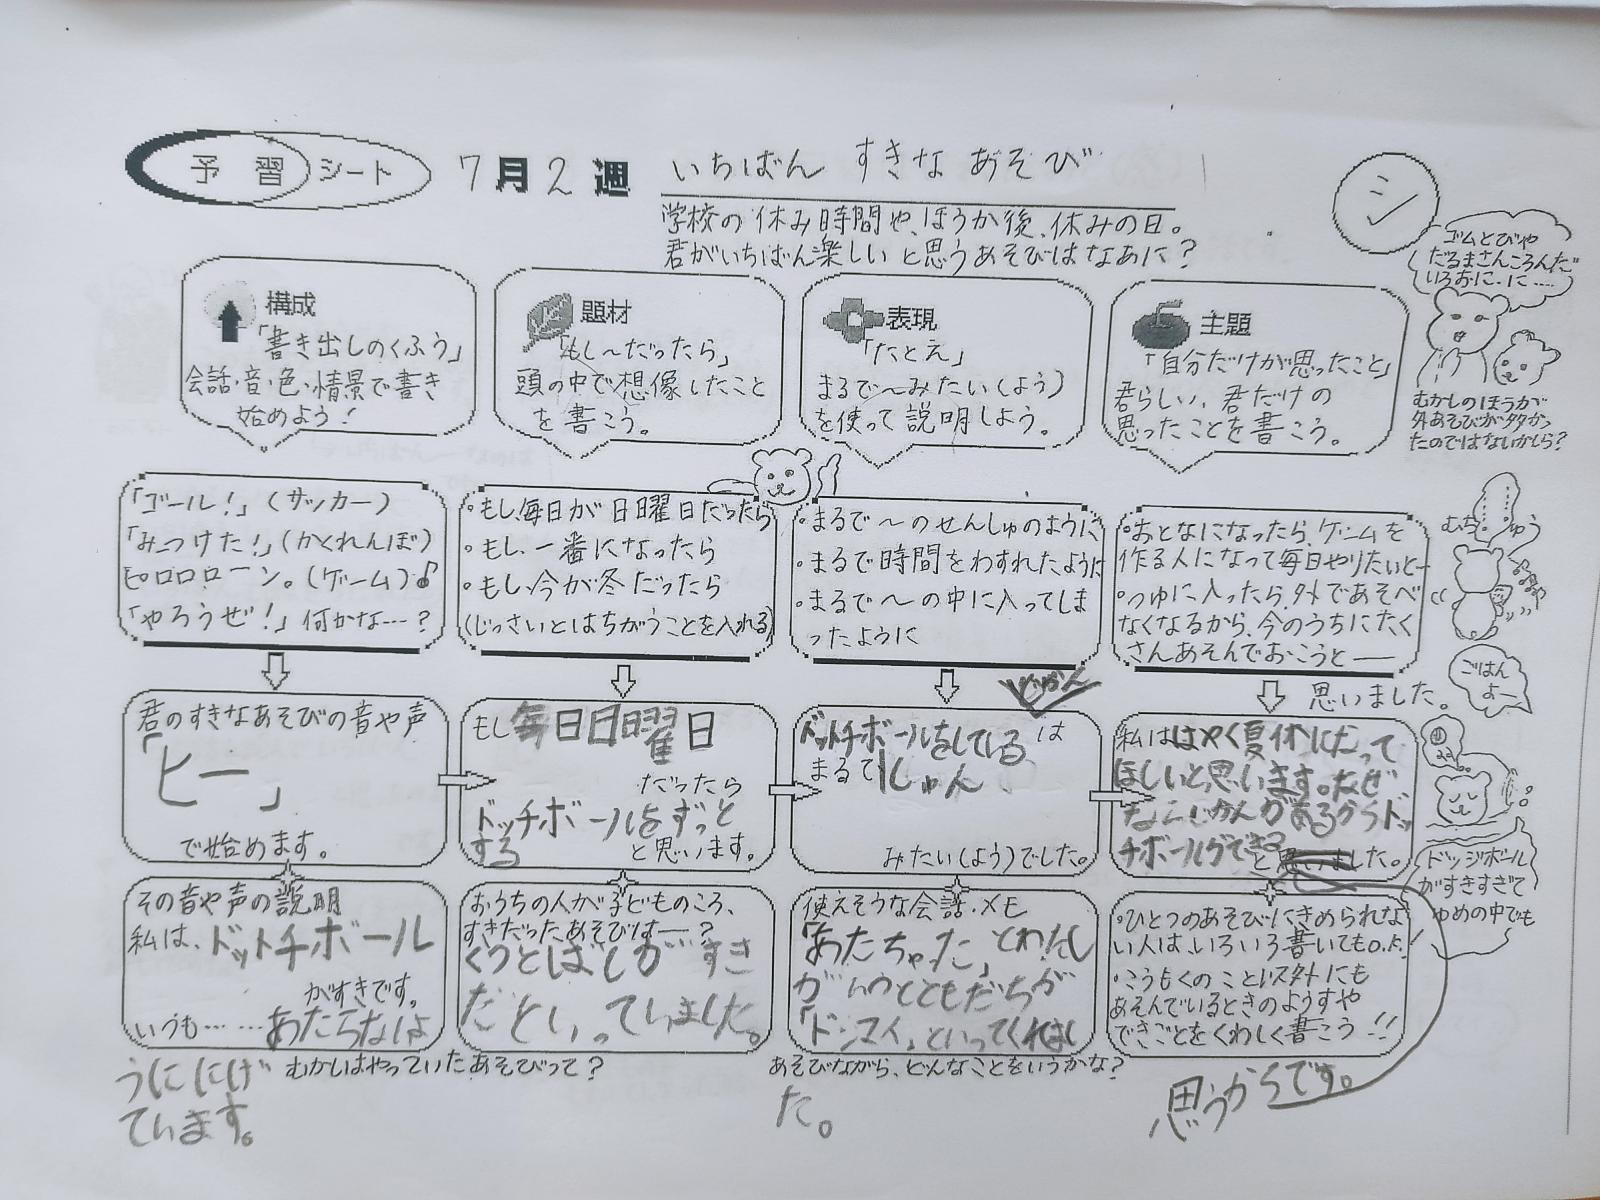 予習シート 7月2週 いちばん すきな あそび
学校の休み時間や、ほうか後、休みの日。
君がいちばん楽しいと思うあそびはなあに？
シ
ゴムとびや
だるまさんころんだ
いろおに・に……
むかしのほうが
外あそびが多かっ
たのではないかしら？
構成
「書き出しのくふう」
会話・音・色・情景で書き
始めよう！
題材
「もし〜だったら」
頭の中で想像したこと
を書こう。
表現
「たとえ」
まるで〜みたい(よう)
を使って説明しよう。
主題
「自分だけが思ったこと」
君らしい、君だけの
思ったことを書こう。
「ゴール！」(サッカー)
「みつけた！」(かくれんぼ)
ピロロローン。(ゲーム)♪
「やろうぜ！」何かな…？
・もし、毎日が日曜日だったら
・もし、一番になったら
・もし、今が冬だったら
(じっさいとはちがうことを入れる)
・まるで〜のせんしゅのように
・まるで時間をわすれたように
・まるで〜の中に入ってしま
ったように
・おとなになったら、ゲームを
作る人になって毎日やりたいと—
・つゆに入ったら、外であそべ
なくなるから、今のうちにたく
さんあそんでおこうと—
思いました。
むちゅう
ごはん
よー
君のすきなあそびの音や声
「ヒー」
で始めます。
もし毎日日曜日
だったら
ドッチボールをずっと
する
と思います。
じかん
ドットチボールをしている は
まるで しゅん
みたい(よう)でした。
私ははやく夏休にたって
ほしいと思います。なぜ
なこじかんがあるからドッ
チボールができる
と 思いました。
ドッジボール
がすきすぎて
ゆめの中でも
その音や声の説明
私は、ドットチボール
がすきです。
いつも……あたらなは
うににげ
ています。
おうちの人が子どものころ、
すきだったあそびは—？
くつとばしがすき
だといっていました。
むかしはやっていたあそびって？
使えそうな会話・メモ
「あたちゃった」とわたし
がいうとともだちが
「ドンマイ」といってくれまし
た。
あそびながら、どんなことをいうかな？
・ひとつのあそびにきめられな
い人は、いろいろ書いてもOK
・こうもくのこと以外にも
あそんでいるときのようすや
できごとをくわしく書こう！！
思うからです。